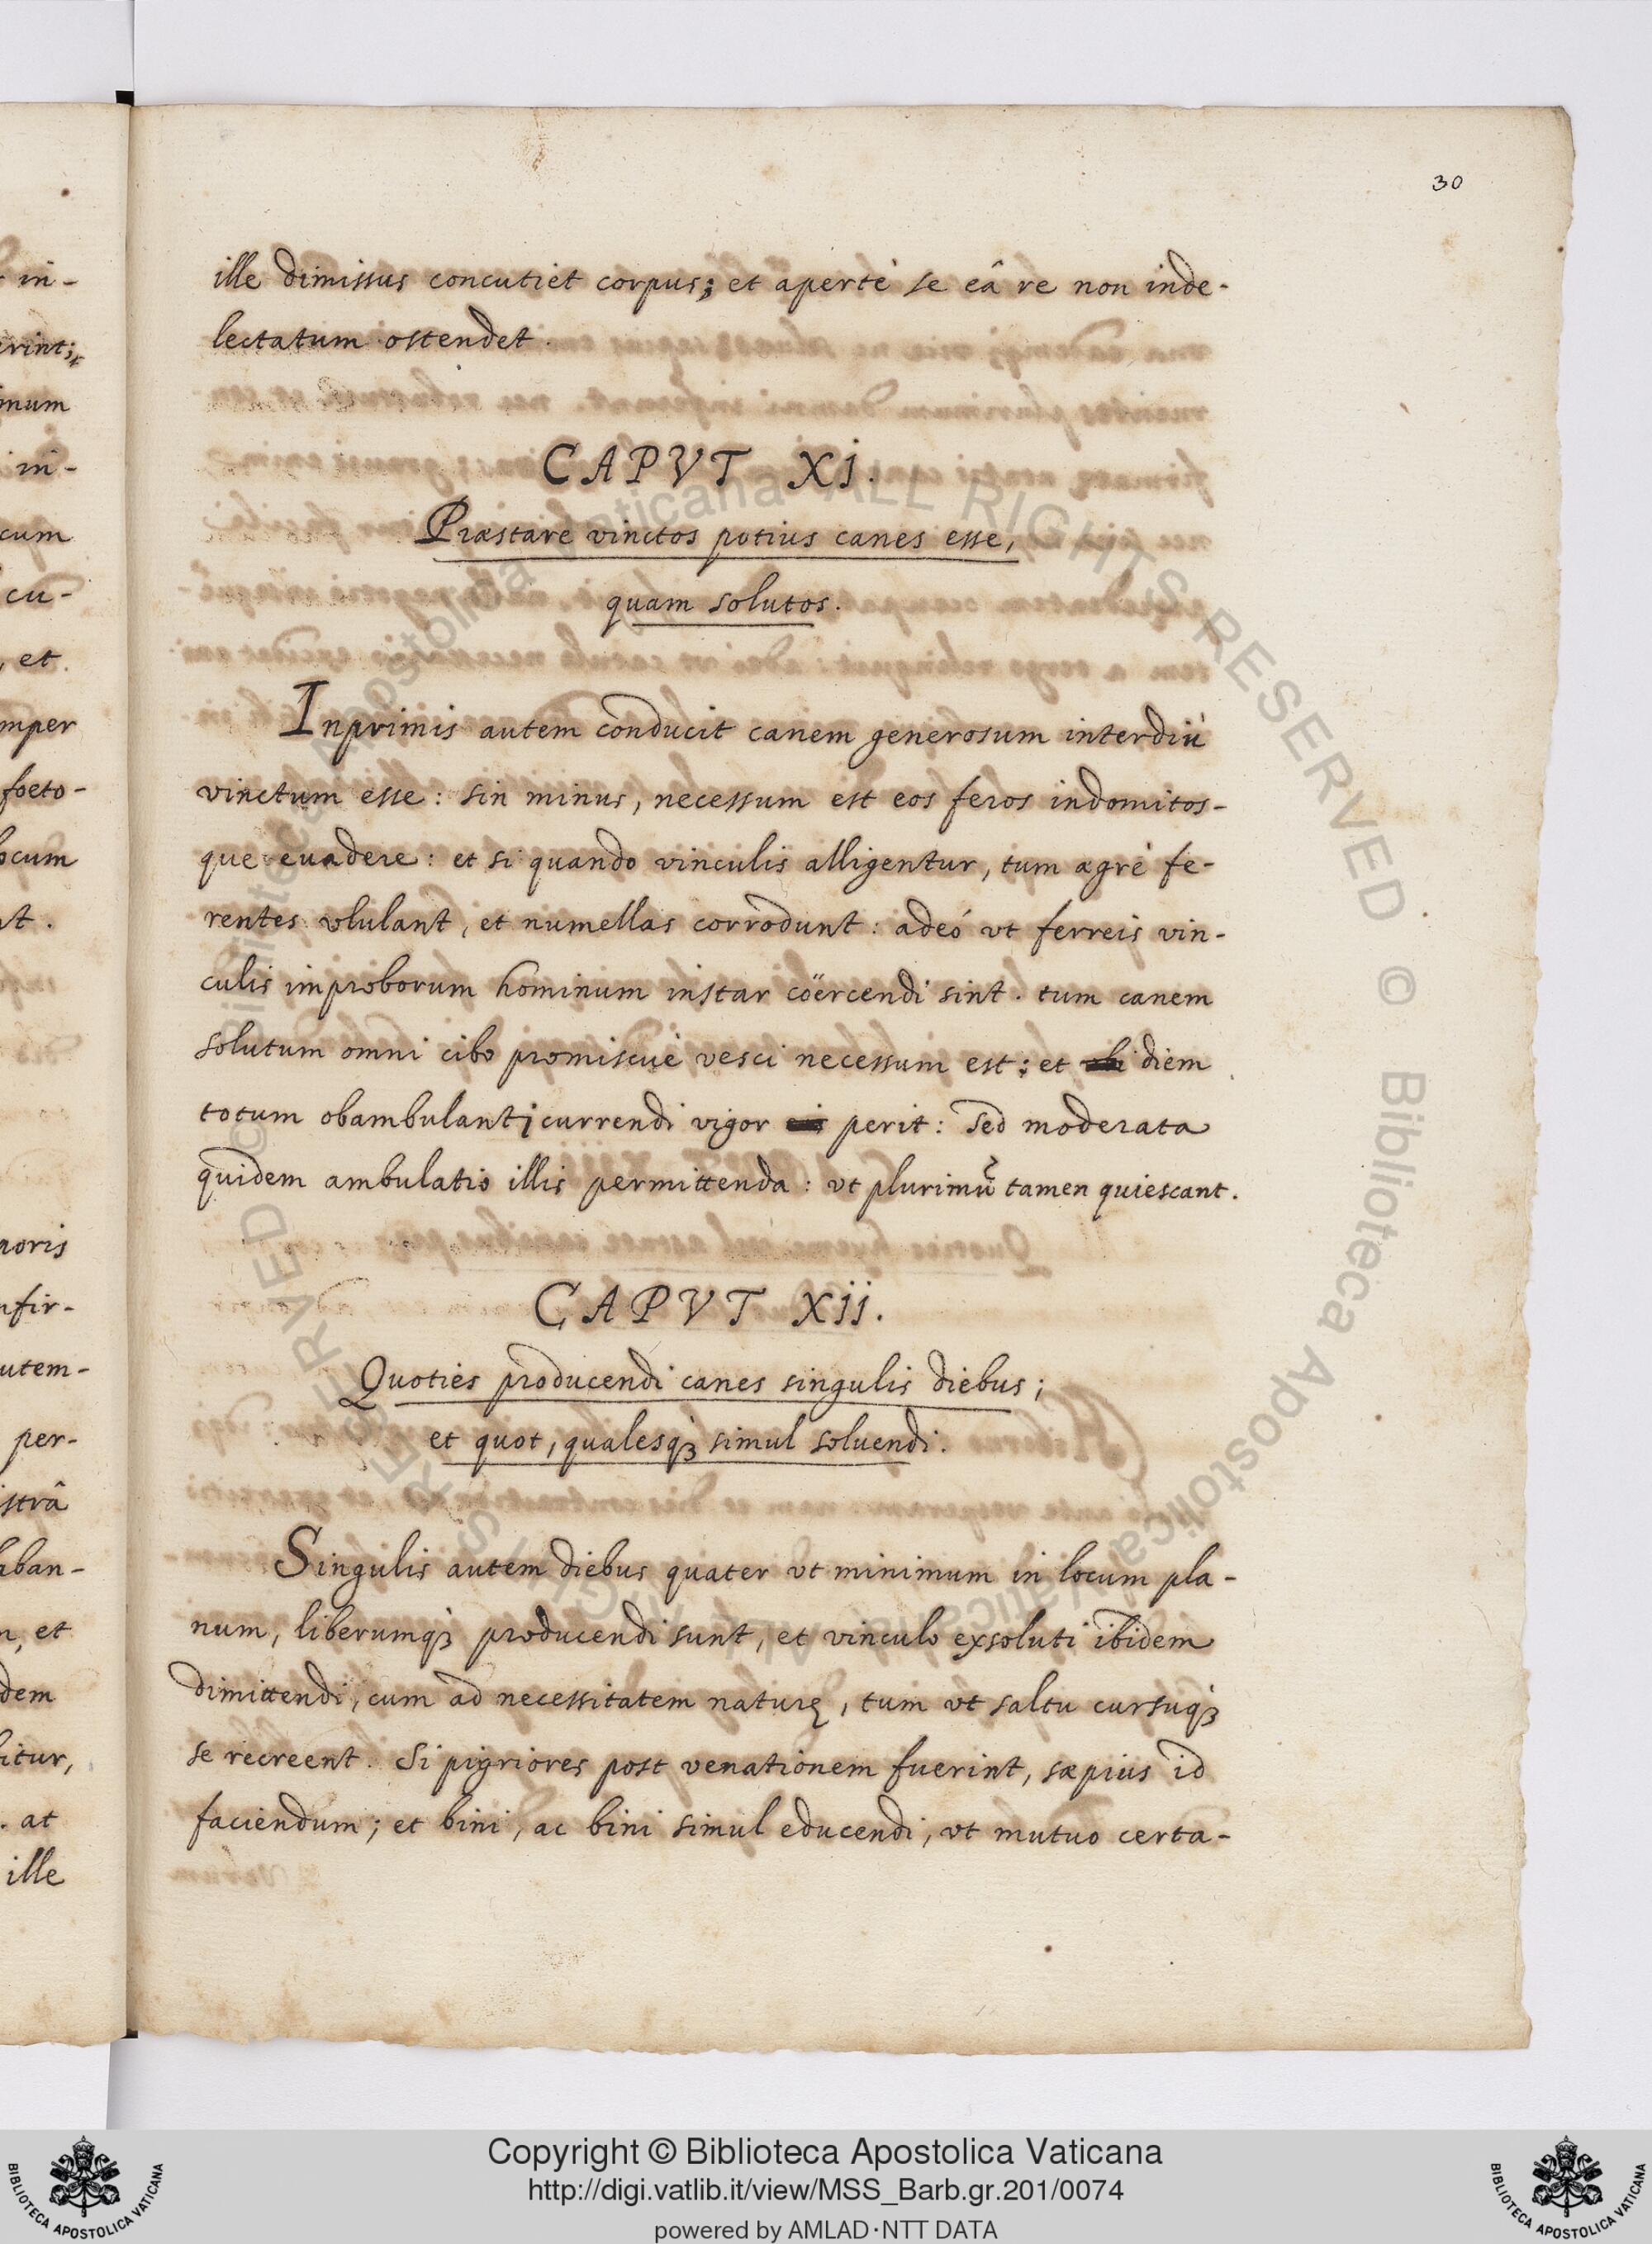 30
in-
mum
in-
cum
cu-
, et
foeto-
per-
at
ille
ille dimissus concutiet corpus; et apertè se eâ re non inde-
lectatum ostendet.
CAPVT XI.
Præstare vinctos potius canes esse,
quam solutos.
Inprimis autem conducit canem generosum interdiù
vinctum esse: sin minus, necessum est eos feros indomitos-
que euadere: et si quando vinculis alligentur, tum ægrè fe-
rentes vlulant, et numellas corrodunt: adeó vt ferreis vin-
culis improborum hominum instar coërcendi sint. tum canem
solutum omni cibo promiscuè vesci necessum est; et diem
totum obambulanti currendi vigor perit: sed moderata
quidem ambulatio illis permittenda: vt plurimũ tamen quiescant.
CAPVT XII.
Quoties producendi canes singulis diebus;
et quot, qualesq̀ꝫ simul soluendi.
Singulis autem diebus quater vt minimum in locum pla-
num, liberumq̀ꝫ producendi sunt, et vinculo exsoluti ibidem
dimittendi, cum ad necessitatem naturę, tum vt saltu cursuq̀ꝫ
se recreent. Si pigriores post venationem fuerint, sæpius id
faciendum; et bini, ac bini simul educendi, vt mutuo certa-
© Biblioteca Apostolica Vaticana ALL RIGHTS RESERVED © Biblioteca Apostolica Vaticana ALL RIGHTS RESERVED
Copyright © Biblioteca Apostolica Vaticana
http://digi.vatlib.it/view/MSS_Barb.gr.201/0074
powered by AMLAD·NTT DATA
BIBLIOTECA APOSTOLICA VATICANA
BIBLIOTECA APOSTOLICA VATICANA